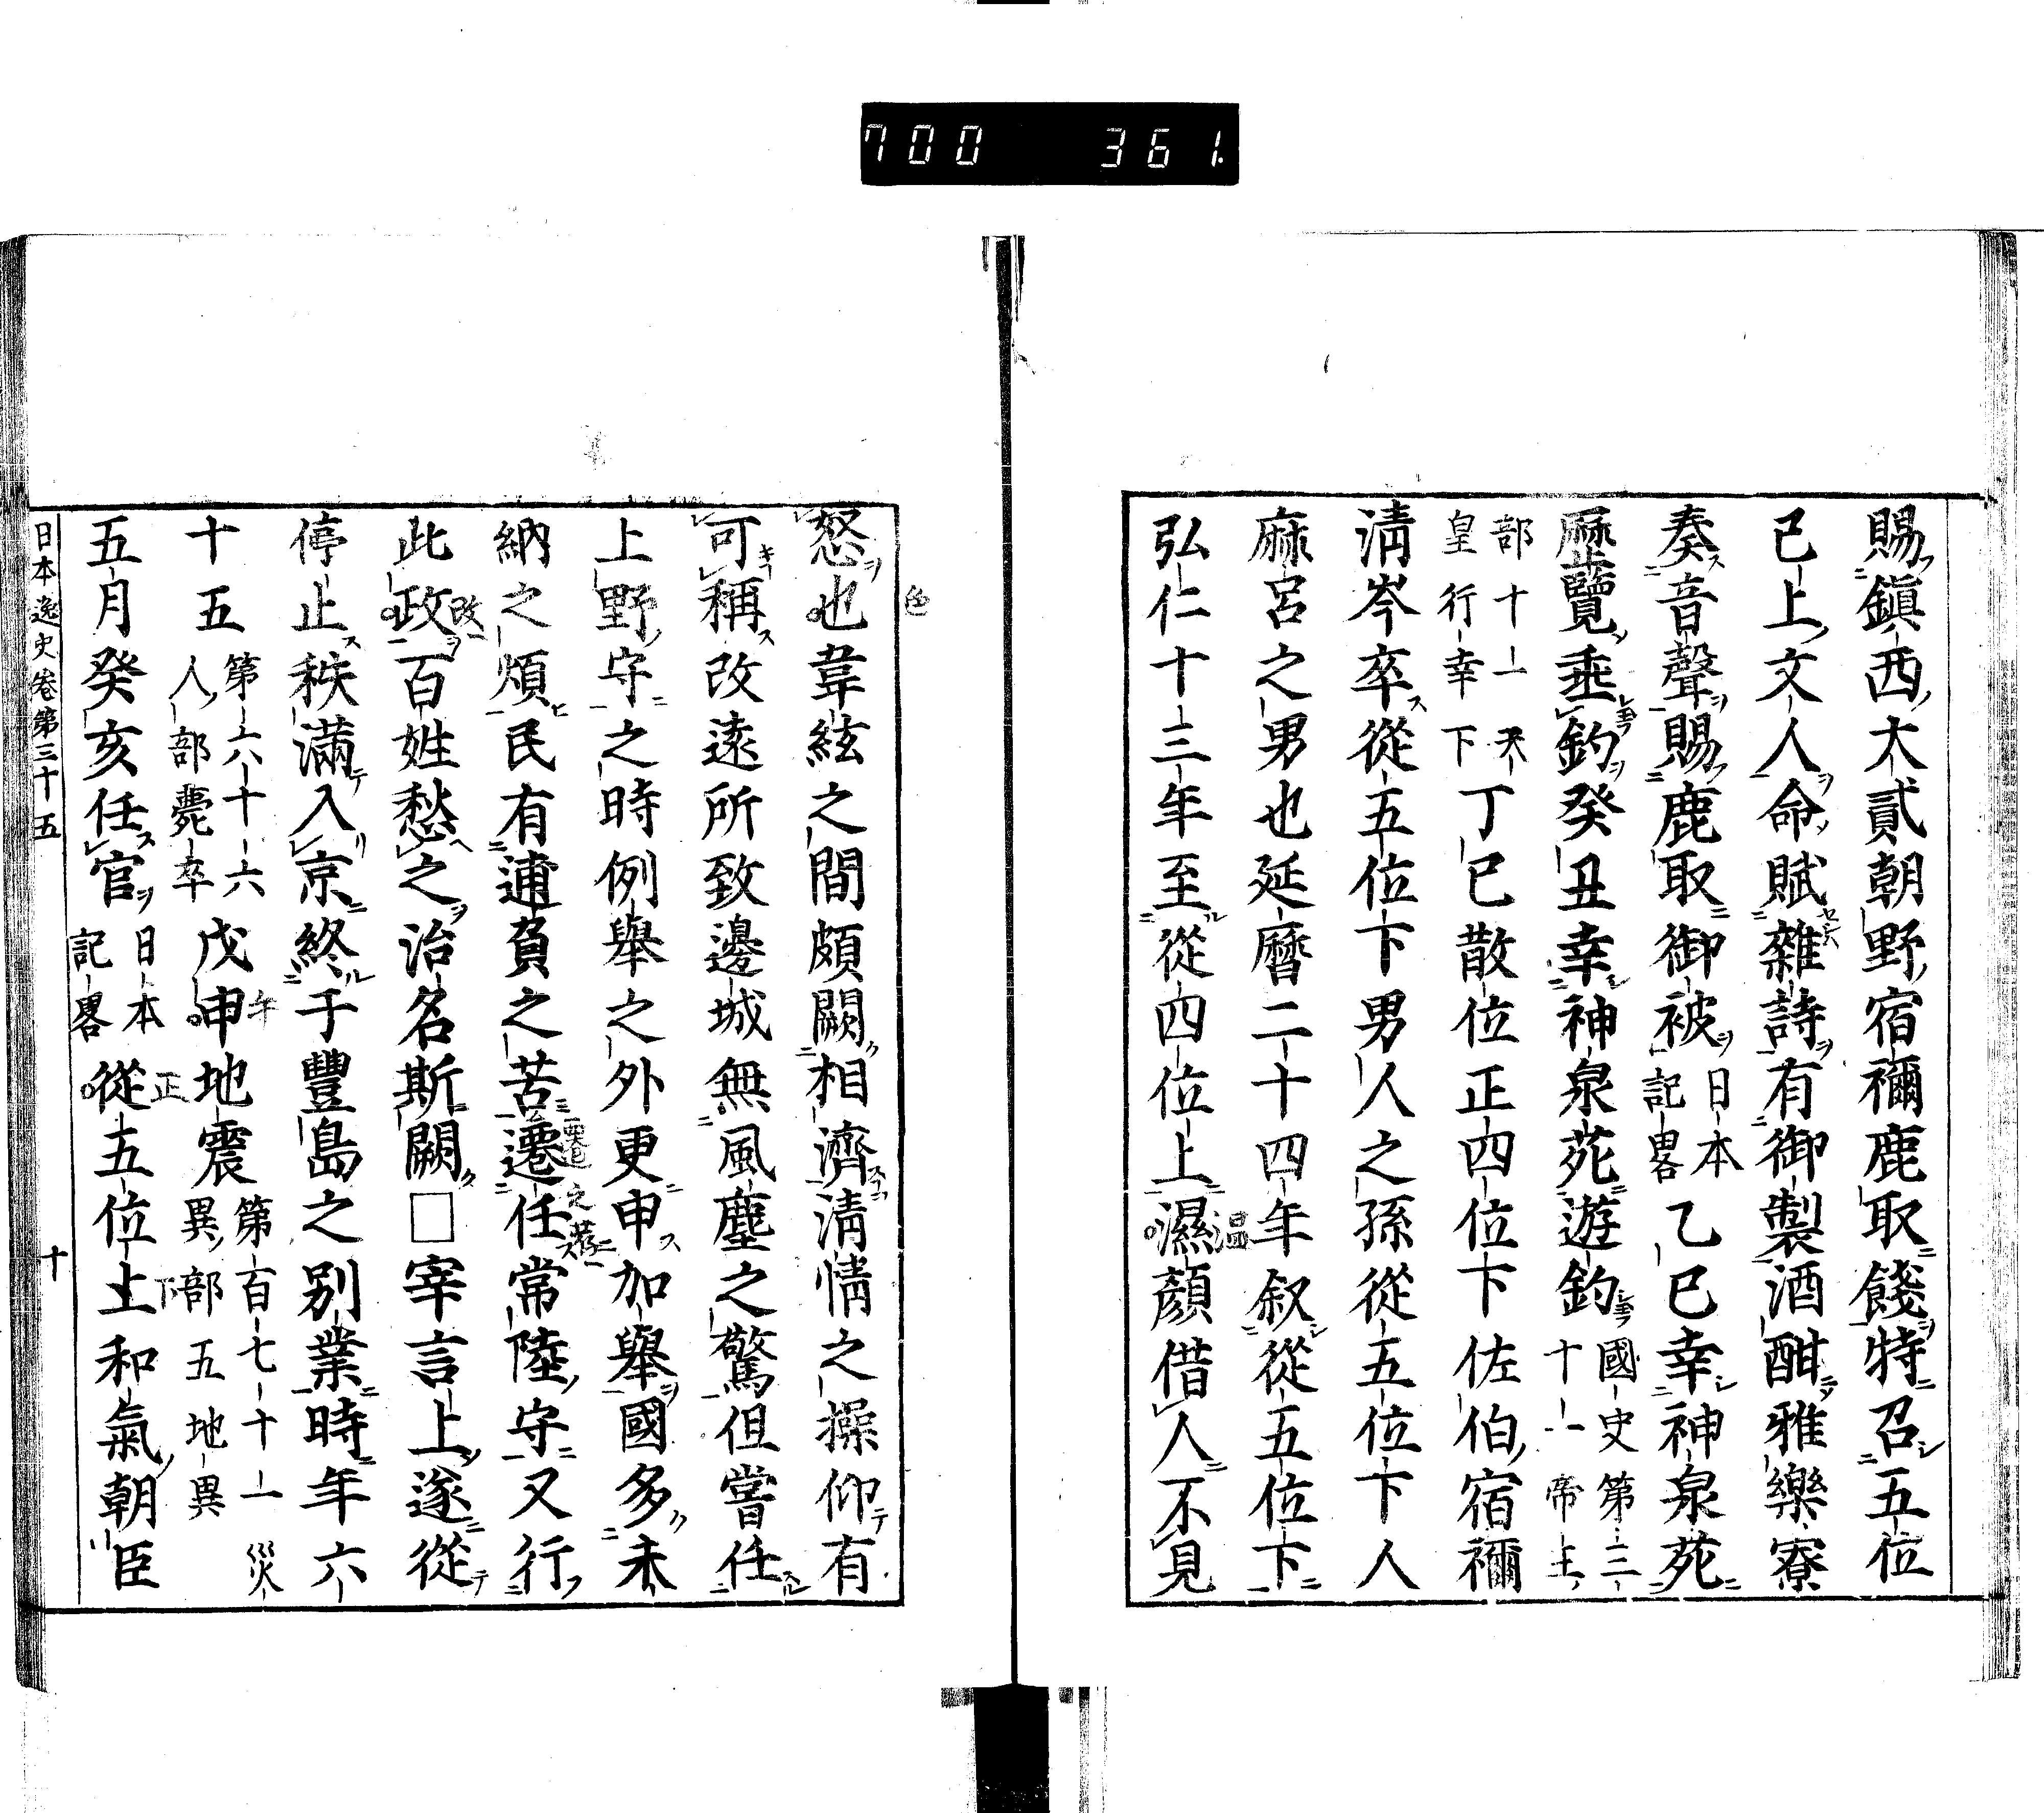 700 361
賜鎭西大貳朝野宿禰鹿取餞特召五位
已上文人命賦雜詩有御製酒酣雅樂寮
奏音聲賜鹿取御被日本記畧乙巳幸神泉苑
歷覽垂釣癸丑幸神泉苑遊釣國史第三十一帝王
部十一天皇行幸下丁巳散位正四位下佐伯宿禰
淸岑卒從五位下男人之孫從五位下人
麻呂之男也延曆二十四年叙從五位下
弘仁十三年至從四位上濕顏借人不見
怒也韋絃之間頗闕相濟淸情之操仰有
可稱改遠所致邊城無風塵之驚但嘗任
上野守之時例舉之外更申加舉國多未
納之煩民有逋負之苦遷任常陸守又行
此政百姓愁之治名斯闕□宰言上遂從
停止秩滿入京終于豐島之別業時年六
十五第六十六人部薨卒戊申地震第百七十一災異部五地異
五月癸亥任官日本記畧從五位上和氣朝臣
日本逸史卷第三十五 十